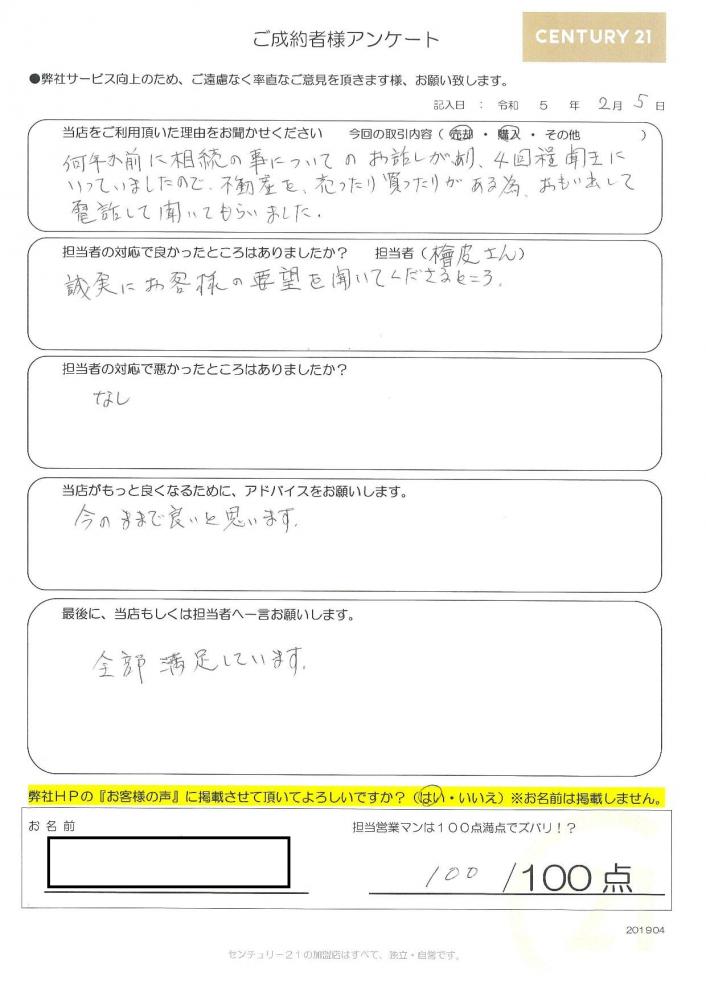 ご成約者様アンケート
CENTURY 21
●弊社サービス向上のため、ご遠慮なく率直なご意見を頂きます様、お願い致します。
記入日 : 令和 5 年 2月 5日
当店をご利用頂いた理由をお聞かせください 今回の取引内容（ 売却 ・ 購入 ・ その他 ）
何年か前に相続の事についてのお話しがあり、4回程聞きに
いっていましたので、不動産を、売ったり買ったりがある為、おもい出して
電話して聞いてもらいました.
担当者の対応で良かったところはありましたか？ 担当者（檜皮さん）
誠実にお客様の要望を聞いてくださるところ.
担当者の対応で悪かったところはありましたか？
なし
当店がもっと良くなるために、アドバイスをお願いします。
今のままで良いと思います.
最後に、当店もしくは担当者へ一言お願いします。
全部満足しています.
弊社ＨＰの『お客様の声』に掲載させて頂いてよろしいですか？（はい・いいえ）※お名前は掲載しません。
お名前
担当営業マンは１００点満点でズバリ！？
100 /100点
201904
センチュリー２１の加盟店はすべて、独立・自営です。